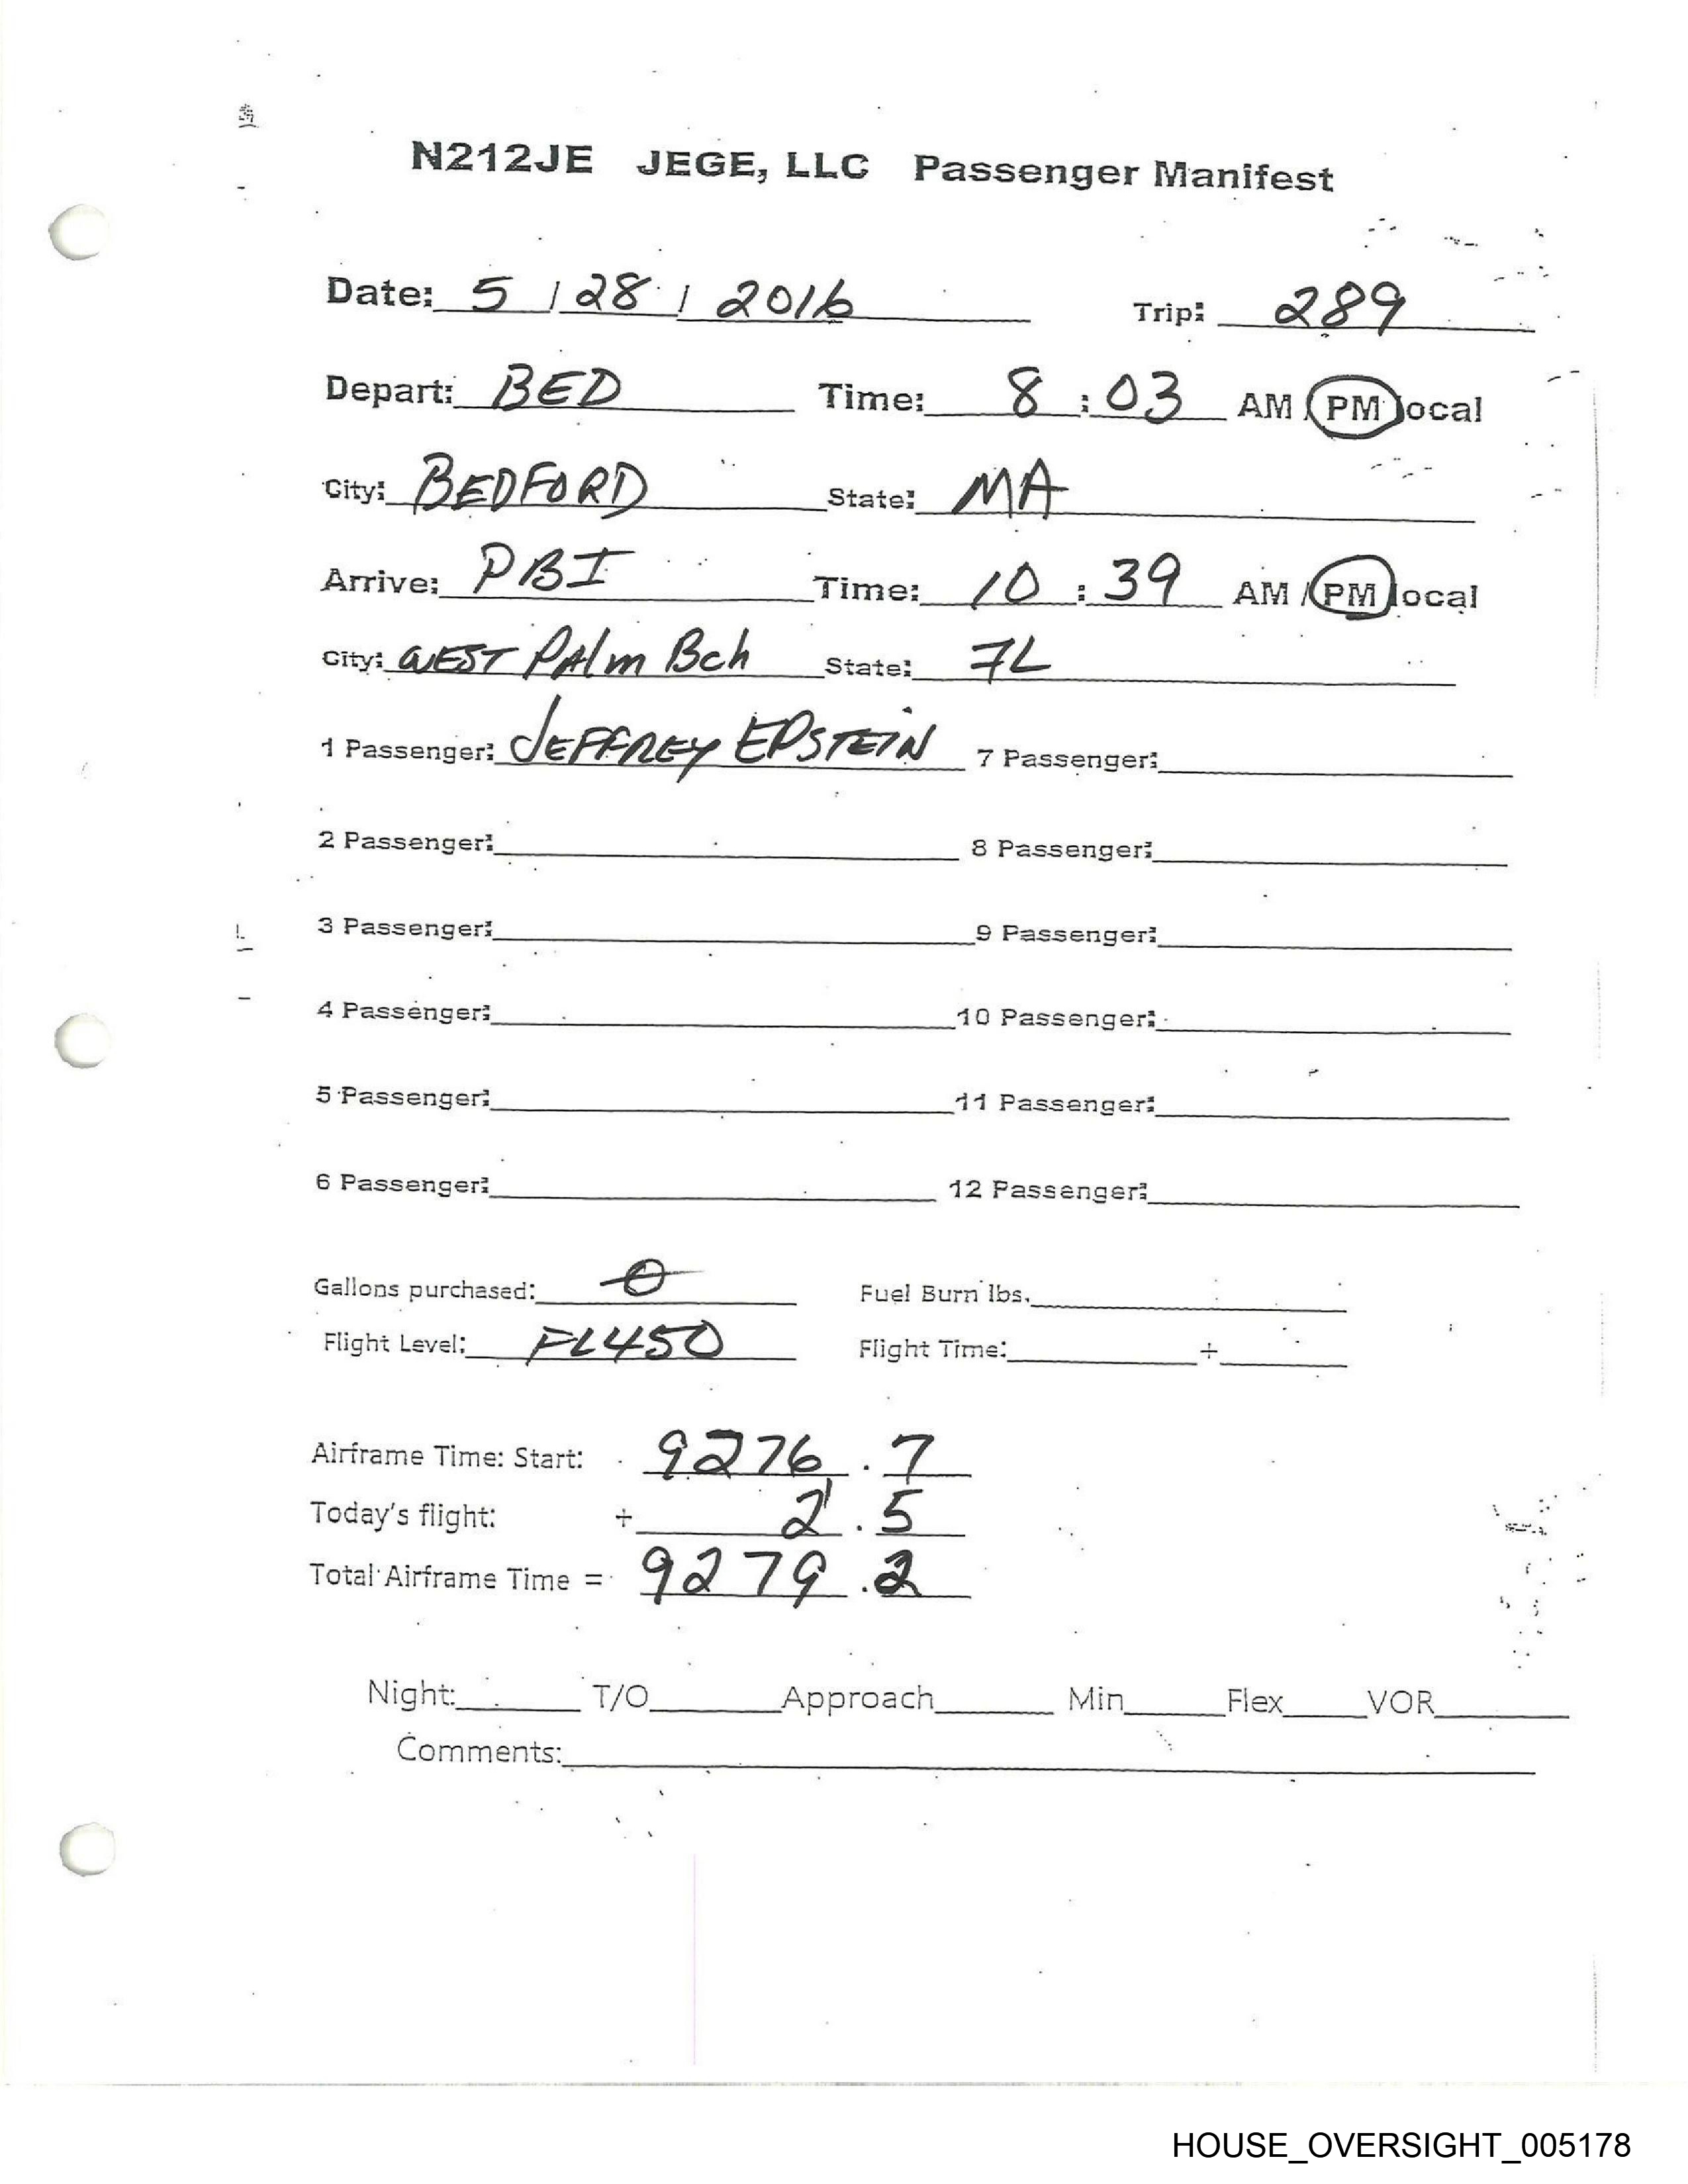 N212JE JEGE, LLC Passenger Manifest
Date: 5 / 28 / 2016 Trip: 289
Depart: BED Time: 8 : 03 AM / PM local
City: BEDFORD State: MA
Arrive: PBI Time: 10 : 39 AM / PM local
City: WEST PAlm Bch State: FL
1 Passenger: JEFFREY EPSTEIN 7 Passenger:
2 Passenger: 8 Passenger:
3 Passenger: 9 Passenger:
4 Passenger: 10 Passenger:
5 Passenger: 11 Passenger:
6 Passenger: 12 Passenger:
Gallons purchased: 0 Fuel Burn lbs.
Flight Level: FL450 Flight Time: +
Airframe Time: Start: 9276 . 7
Today's flight: + 2 . 5
Total Airframe Time = 9279 . 2
Night: T/O Approach Min Flex VOR
Comments:
HOUSE_OVERSIGHT_005178